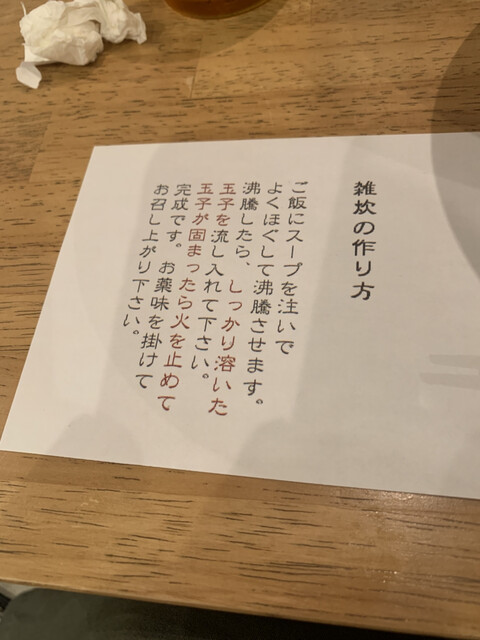 雑炊の作り方
ご飯にスープを注いで
よくほぐして沸騰させます。
沸騰したら、しっかり溶いた
玉子を流し入れて下さい。
玉子が固まったら火を止めて
完成です。お薬味を掛けて
お召し上がり下さい。